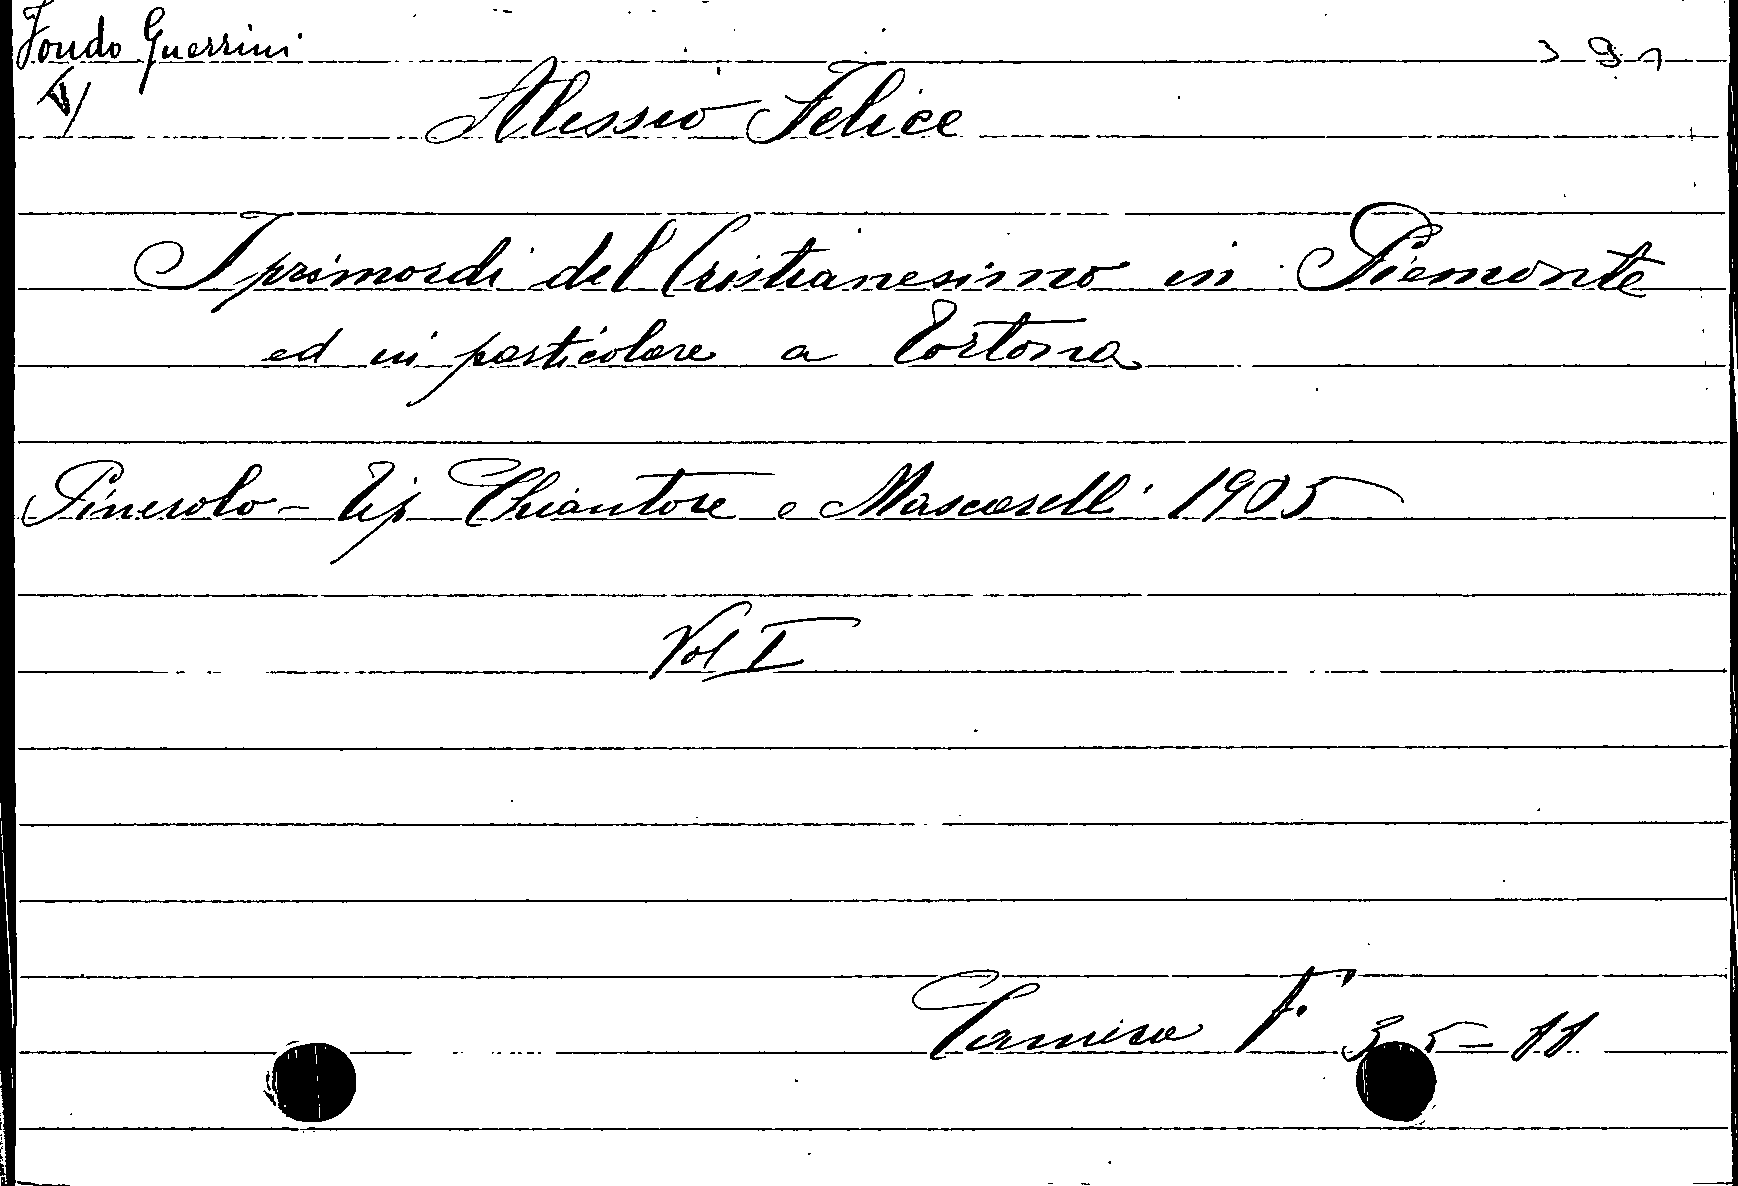 Fondo Guerrini
391
V/
Alessio Felice
I primordi del Cristianesimo in Piemonte
ed in particolare a Tortona
Pinerolo - Tip Chiantore e Mascarelli 1905
Vol I
Camera F. 35-11